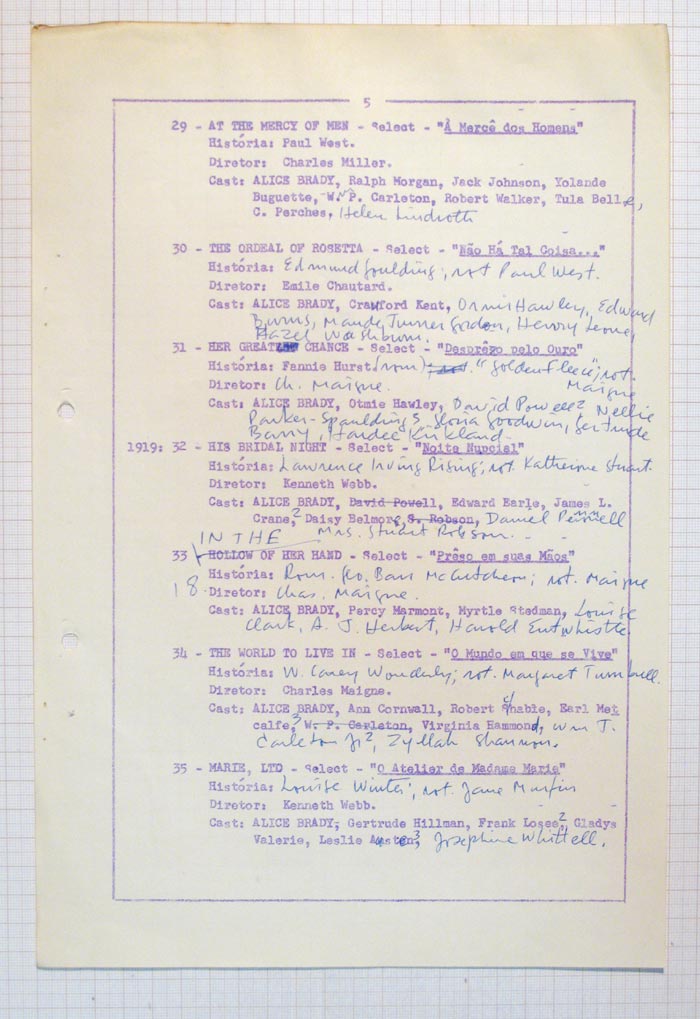 5
29 - AT THE MERCY OF MEN - Select - "À Mercê dos Homens"
História: Paul West.
Diretor: Charles Miller.
Cast: ALICE BRADY, Ralph Morgan, Jack Johnson, Yolande
Buguette, W. P. Carleton, Robert Walker, Tula Belle,
C. Perches, Helen Lindroth
30 - THE ORDEAL OF ROSETTA - Select - "Não Há Tal Coisa..."
História: Edmund Goulding; rot Paul West.
Diretor: Emile Chautard.
Cast: ALICE BRADY, Crauford Kent, Ormi Hawley, Edward
Burns, Maude Turner Gordon, Henry Leone,
Hazel Washburn.
31 - HER GREAT CHANCE - Select - "Desprêzo pelo Ouro"
História: Fannie Hurst (rom) "Golden Fleece"; rot.
Diretor: Ch. Maigne. Maigne
Cast: ALICE BRADY, Otmie Hawley, David Powell 2 Nellie
Parker-Spaulding, Gloria Goodwin, Gertrude
Barry, Hardee Kirkland
1919: 32 - HIS BRIDAL NIGHT - Select - "Noite Nupcial"
História: Lawrence Irving Rising; rot. Katherine Stuart.
Diretor: Kenneth Webb.
Cast: ALICE BRADY, David Powell, Edward Earle, James L.
Crane,2 Daisy Belmore, S. Robson, Daniel Pennell
IN THE Mrs. Stuart Robson.
33 - HOLLOW OF HER HAND - Select - "Prêso em suas Mãos"
História: Rom. Geo. Barr McCutcheon; rot. Maigne
18 Diretor: Chas. Maigne.
Cast: ALICE BRADY, Percy Marmont, Myrtle Stedman, Louise
Clark, A. J. Herbert, Harold Entwhistle
34 - THE WORLD TO LIVE IN - Select - "O Mundo em que se Vive"
História: W. Carey Wonderly; rot. Margaret Turnbull.
Diretor: Charles Maigne.
Cast: ALICE BRADY, Ann Cornwall, Robert Schable, Earl Met
calfe,3 W. P. Carleton, Virginia Hammond, Wm T.
Carleton Jr 2, Zyllah Shannon.
35 - MARIE, LTD - Select - "O Atelier de Madame Marie"
História: Louise Winter; rot. Jane Murfin
Diretor: Kenneth Webb.
Cast: ALICE BRADY, Gertrude Hillman, Frank Losee,2 Gladys
Valerie, Leslie Austen,3 Josephine Whittell.